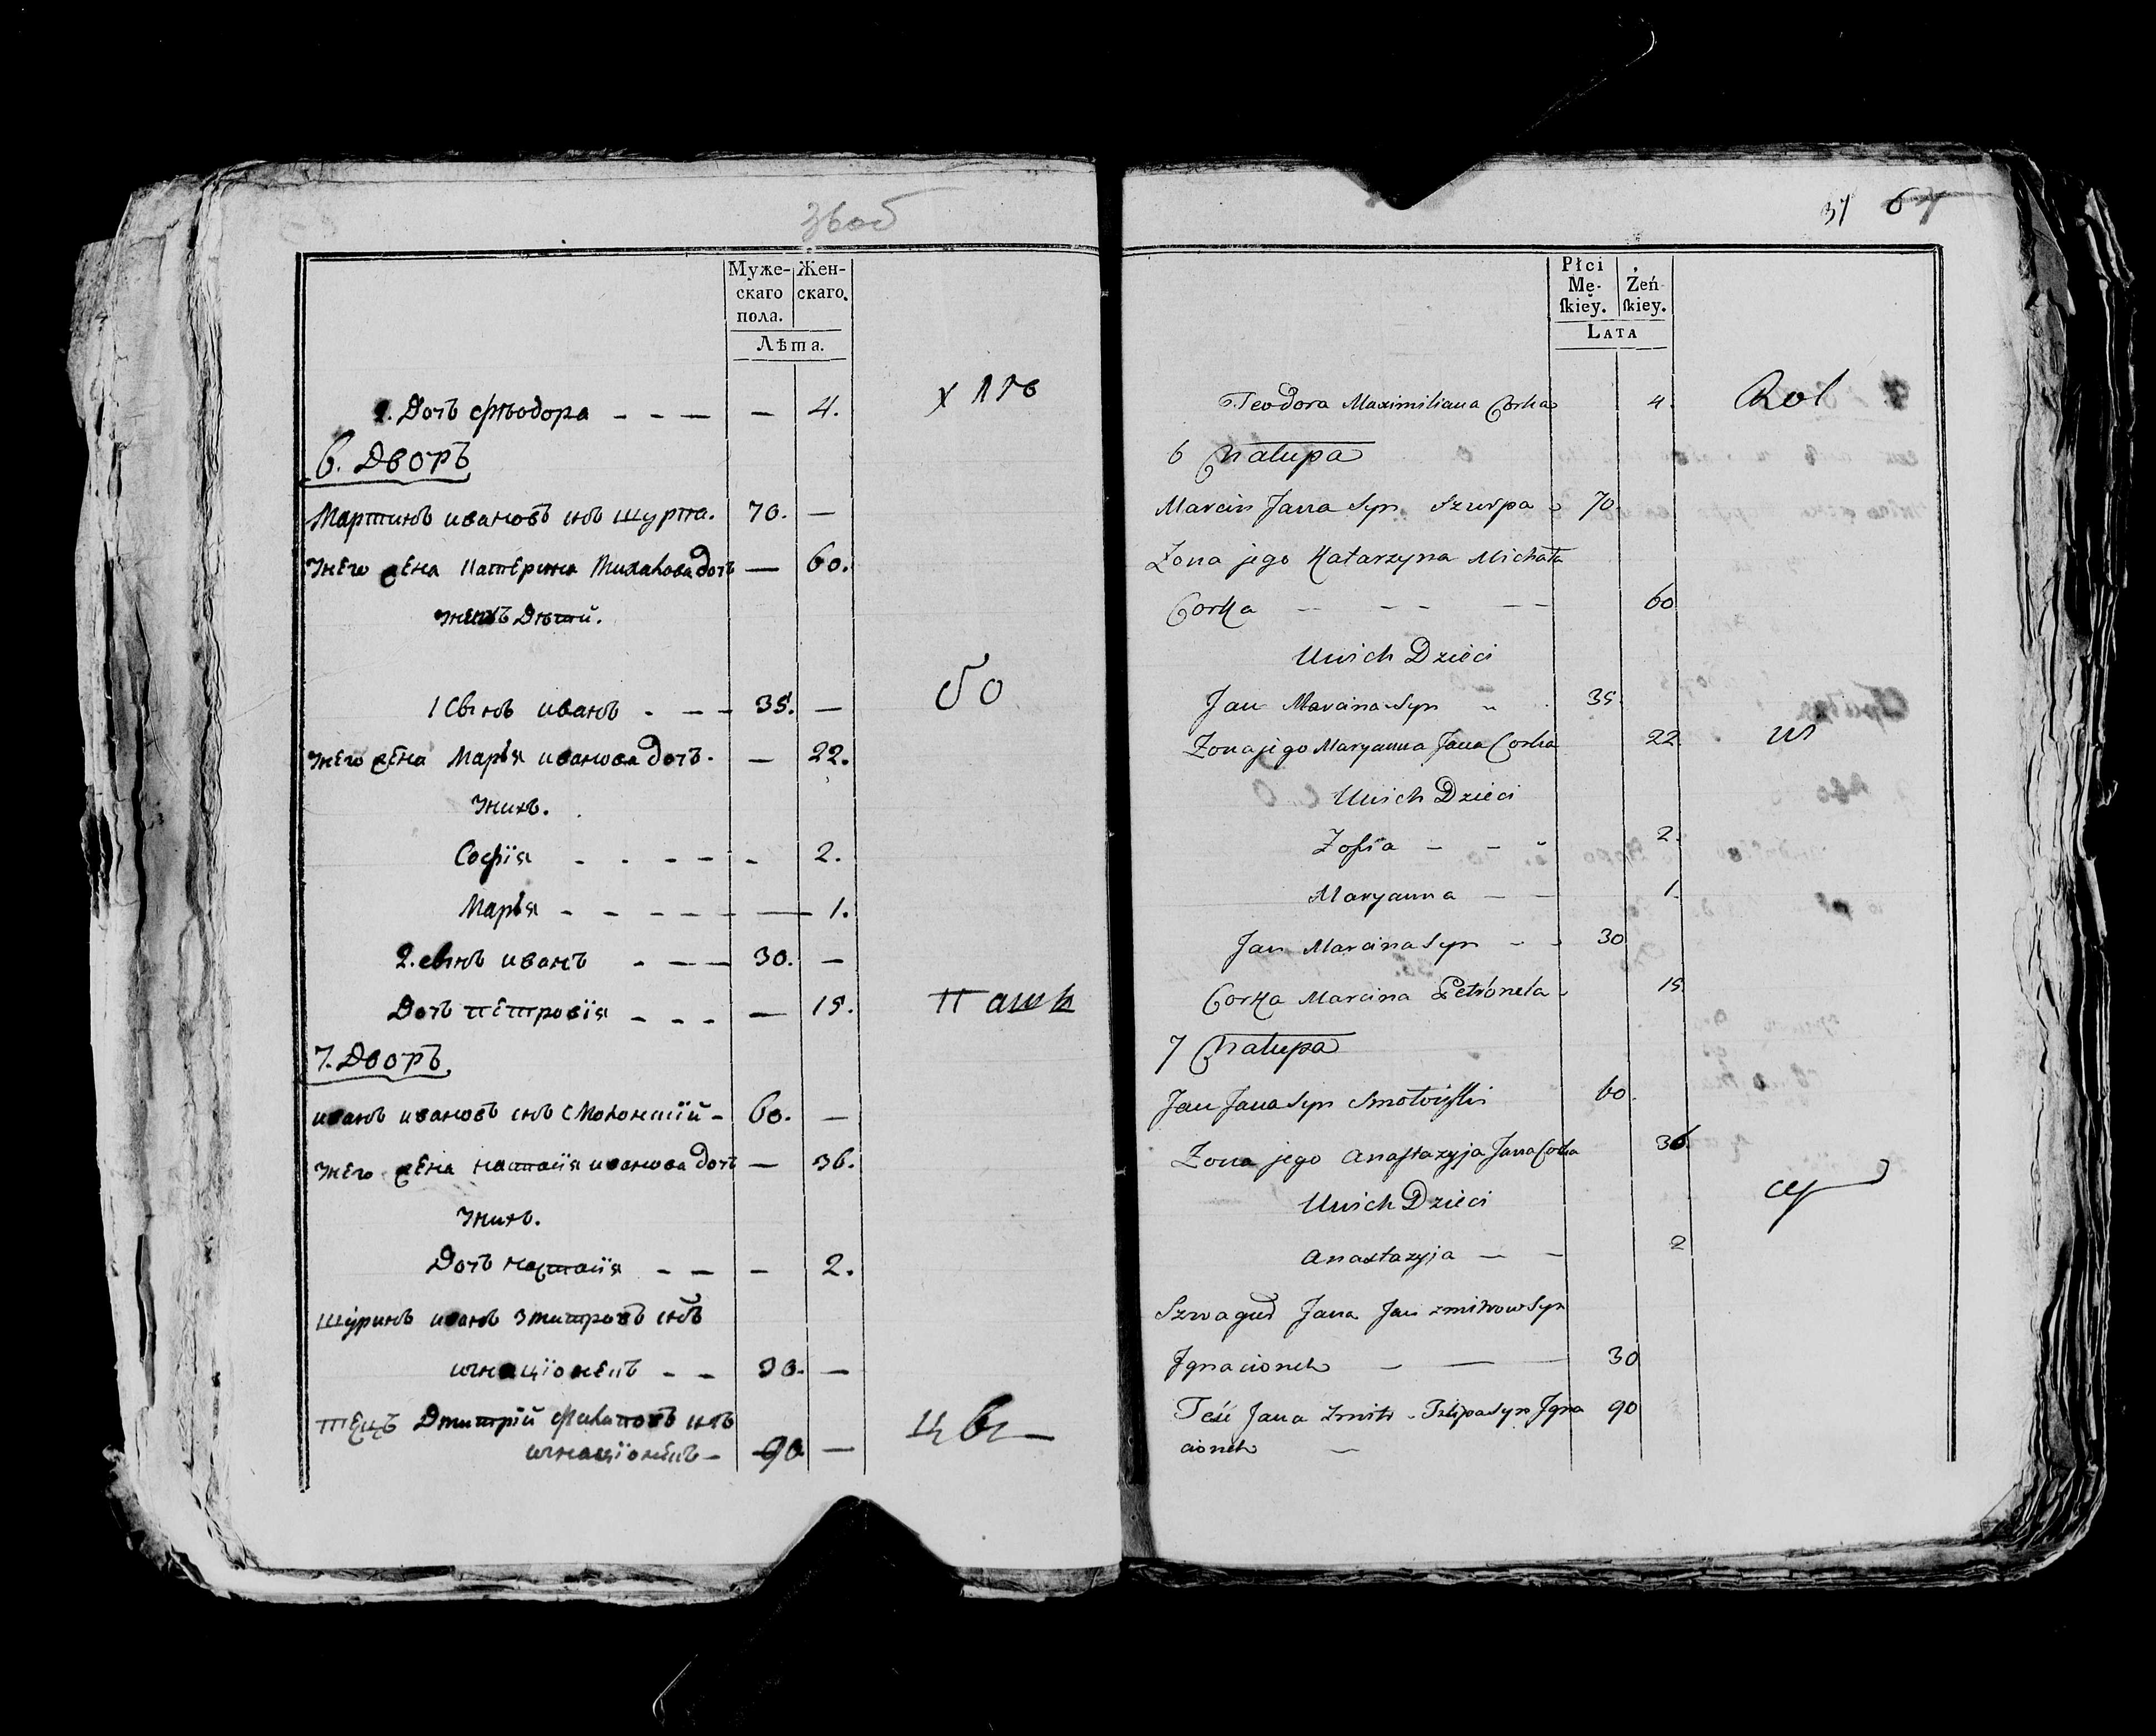 36об
Муже- Жен-
скаго скаго.
пола.
Лѣта.
2. Дочь Фѣодора - - - — 4.
6. Дворъ
Мартинъ ивановъ снъ шурпа. 70. —
Унего жена Катерина Михалова дочь — 60.
Унихъ Дѣтй.
1 Сынъ иванъ - - - 35. —
Унего жена Марья иванова дочь - — 22.
Унихъ.
Софїя - - - - - 2.
Марья - - - - - — 1.
2. сынъ иванъ - - - 30. —
Дочь - - - — 15.
7. Дворъ
иванъ ивановъ снъ - 60. —
Унего жена настасїя иванова дочь — 36.
Унихъ.
Дочь настасїя - - - 2.
Шуринъ иванъ Змитровъ снъ
игнацїонекъ - - 30. —
тесць Дмитрїй Филиповъ снъ
игнацїонекъ - 90 —
37 67
Płci
Mę- Żeń-
ſkiey. ſkiey.
LATA
Teodora Maximiliana Corka 4. Rol
6 Chalupa
Marcin Jana Syn Szurpa 70.
Zona jego Katarzyna Michała
Corka — — — — 60
Unich Dzieci
Jan Marcina Syn 35.
Zona jego Maryanna Jana Corka 22.
Unich Dzieci
Zofia — - 2.
Maryanna — — 1.
Jan Marcina Syn - - 30
Corka Marcina Petronela 15
7 Chalupa
Jan Jana Syn 60.
Zona jego Anaſtazyja Jana Corka 36.
Unich Dzieci
Anastazyja — — 2
Szwagier Jana Jan Zmitrow Syn
Jgnacionek — — — 30
Teść Jana Zmitr Filipa Syn Jgna 90
cionek —